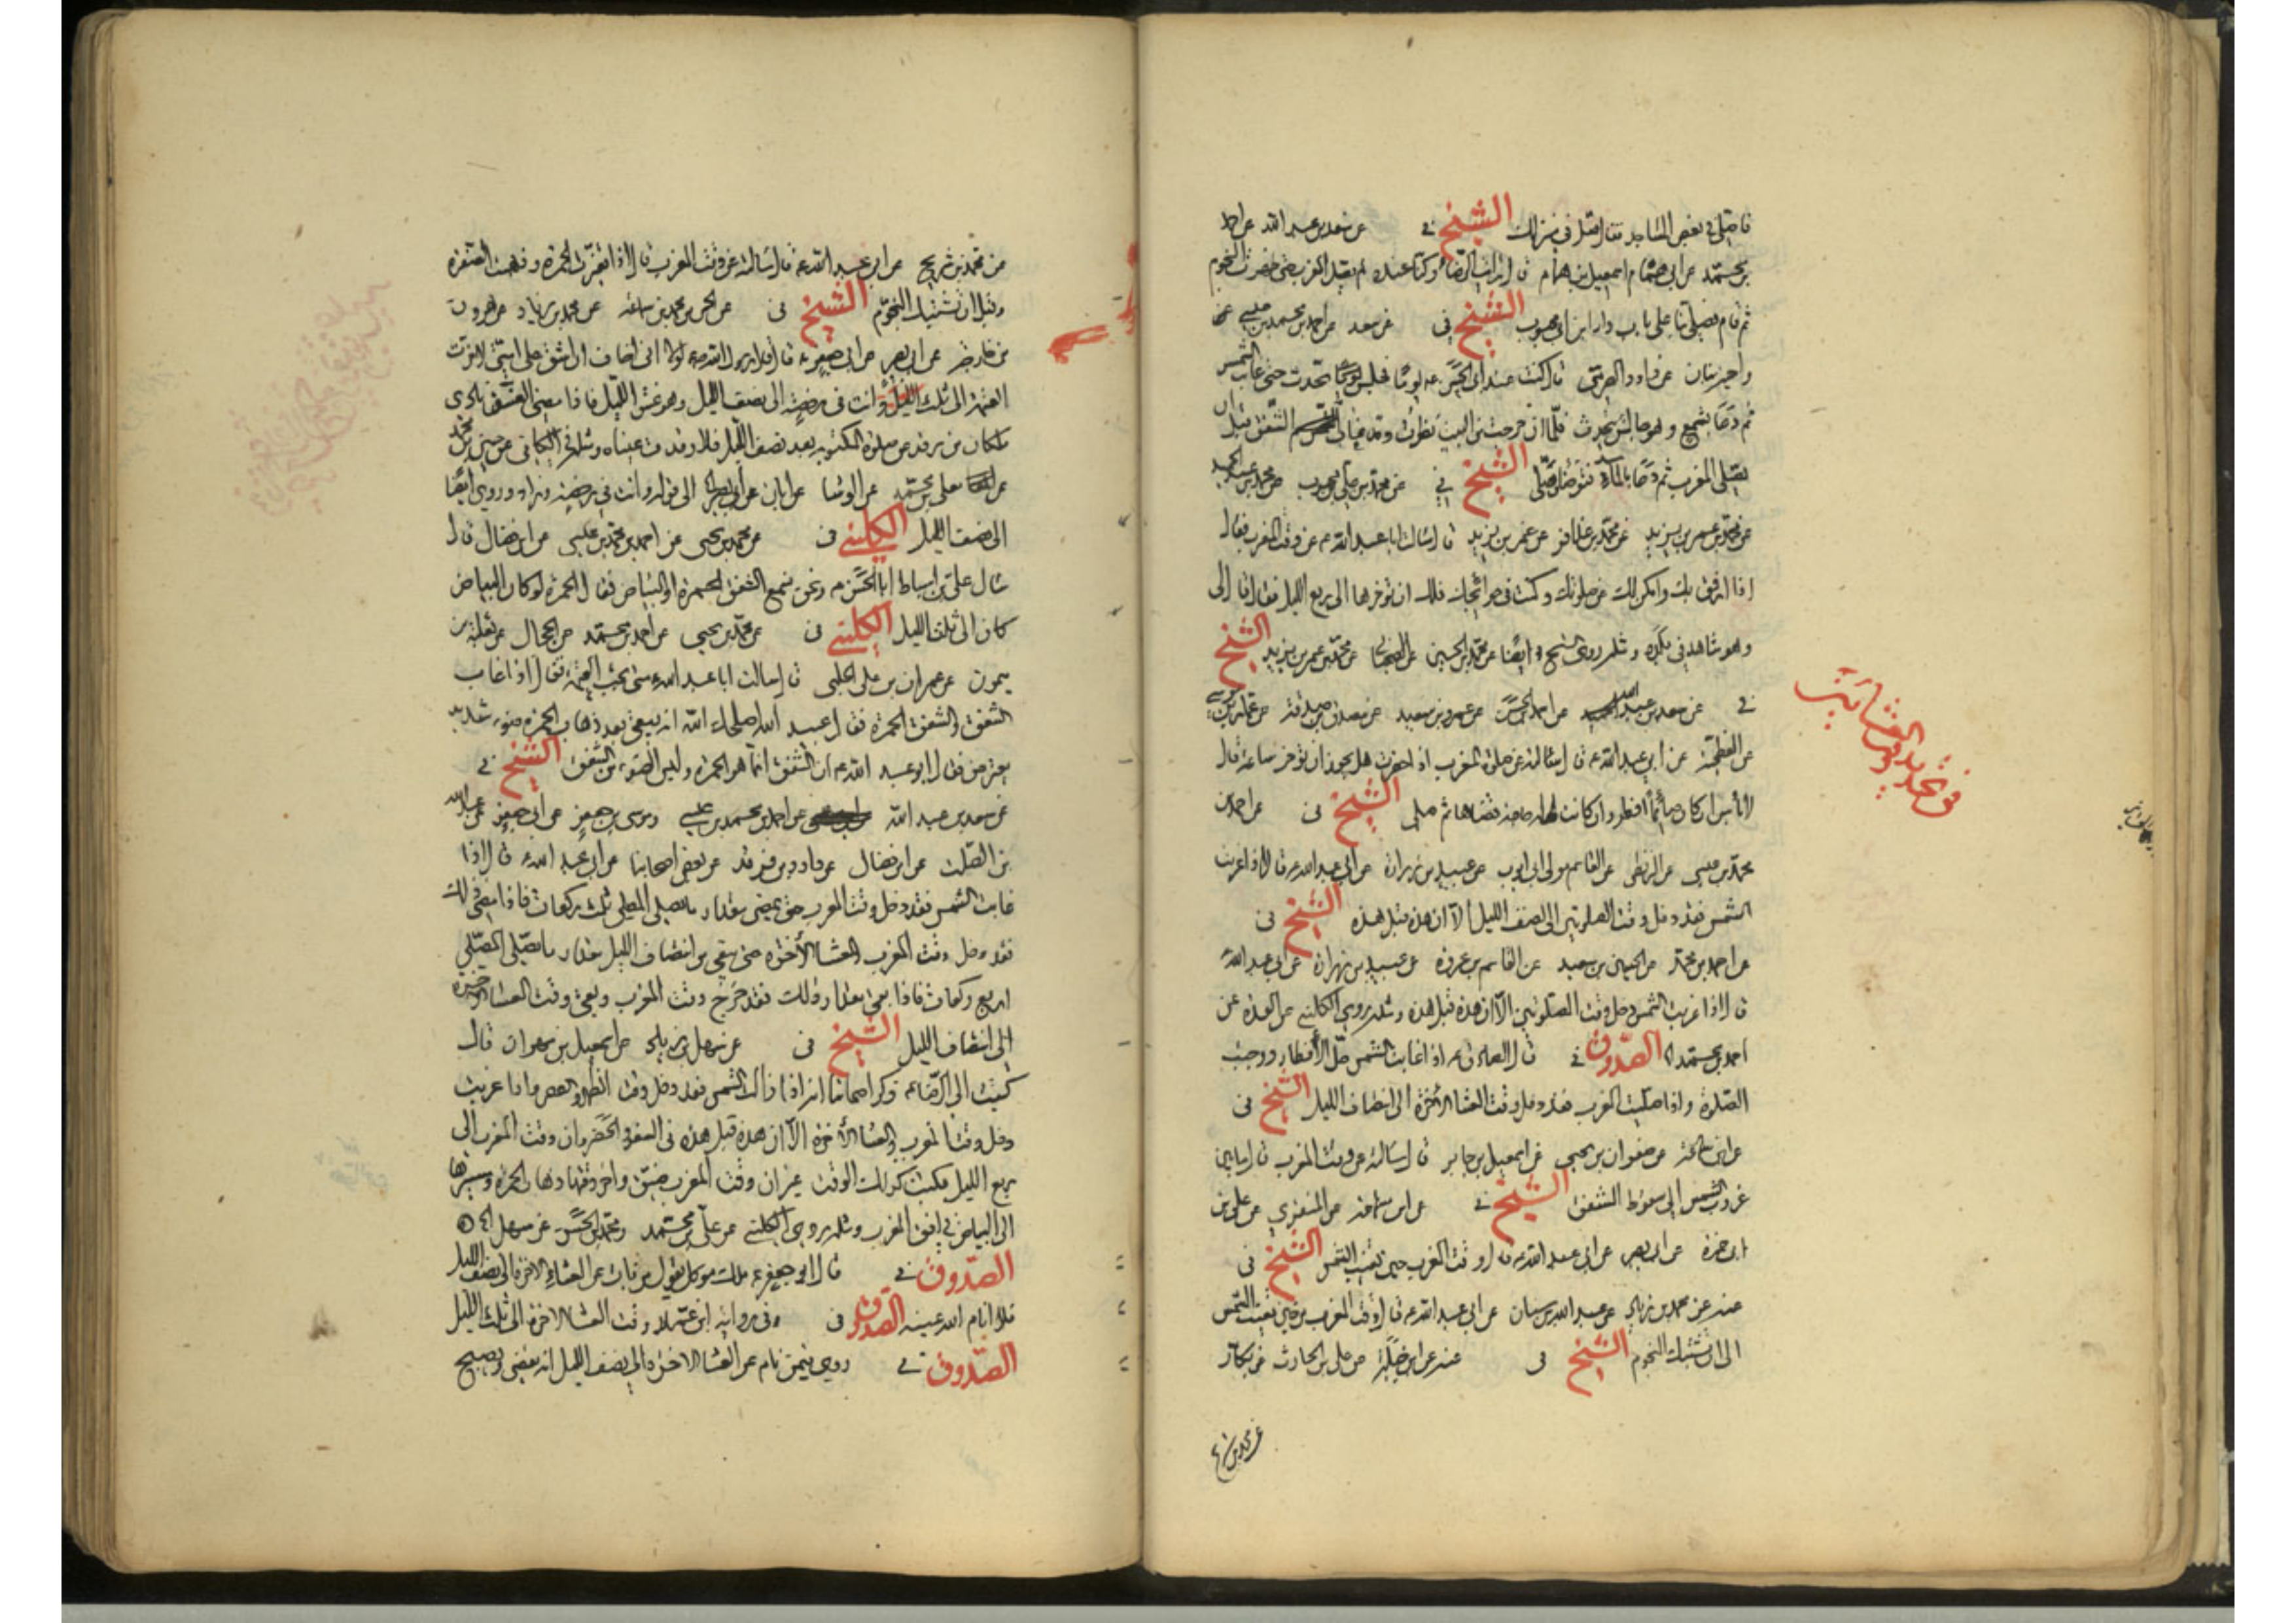 فاصلي في بعض المساجد فقال صل في منزلك الشيخ في عن سعد بن عبد الله عن احمد
بن محمد عن ابي همام اسمعيل بن همام قال رايت الرضا ع وكنا عنده لم يصل المغرب حتى ظهرت النجوم
ثم قام فصلى بنا على باب دار ابن ابي محمود الشيخ في عن سعد عن احمد بن محمد بن عيسى
عن داود الصرمي قال كنت عند ابي الحسن ع يوما فجلس يحدث حتى غابت الشمس
ثم دعا بشمع وهو جالس يتحدث فلما ان خرجت من البيت نظرت وقد غاب الشفق قبل ان
يصلي المغرب ثم دعا بالماء فتوضا وصلى الشيخ في عن محمد بن علي بن محبوب عن محمد بن عبد الحميد
عن محمد بن عمر بن يزيد عن محمد بن عذافر عن عمر بن يزيد قال سالت ابا عبد الله ع عن وقت المغرب فقال
اذا كان ارفق بك وامكن لك في صلوتك وكنت في حوائجك فلك ان تؤخرها الى ربع الليل فقال قال لي
وهو شاهد في بلده ومثله روى الشيخ ايضا عن محمد بن الحسين عن محمد بن عمر بن يزيد الشيخ
في عن سعد بن عبد الله عن احمد بن الحسن عن عمرو بن سعيد عن مصدق بن صدقة عن عمار بن موسى
عن ابي عبد الله ع قال سالته عن صلوة المغرب اذا حضرت هل يجوز ان تؤخر ساعة قال
لا باس ان كان صائما افطر وان كانت له حاجة قضاها ثم صلى الشيخ في عن احمد بن
محمد بن عيسى عن البزنطي عن القاسم مولى ابي ايوب عن عبيد بن زرارة عن ابي عبد الله ع قال اذا غربت
الشمس فقد دخل وقت الصلوتين الى نصف الليل الا ان هذه قبل هذه الشيخ في
عن احمد بن محمد عن الحسين بن سعيد عن القاسم بن عروة عن عبيد بن زرارة عن ابي عبد الله ع
قال اذا غربت الشمس دخل وقت الصلوتين الا ان هذه قبل هذه ومثله روى الكليني عن العدة عن
احمد بن محمد الصدوق في قال الصادق ع اذا غابت الشمس حل الافطار ووجبت
الصلوة واذا صليت المغرب فقد دخل وقت العشاء الاخرة الى انتصاف الليل الشيخ في
عن صفوان بن يحيى عن اسمعيل بن جابر قال سالته عن وقت المغرب قال ما بين
غروب الشمس الى سقوط الشفق الشيخ في عن ابن سماعة عن المنقري عن علي بن
ابي حمزة عن ابي بصير عن ابي عبد الله ع قال وقت المغرب حين تغيب الشمس الشيخ في
عنه عن محمد بن زياد عن عبد الله بن سنان عن ابي عبد الله ع قال وقت المغرب من حين تغيب الشمس
الى ان تشتبك النجوم الشيخ في عنه عن ابن جبلة عن علي بن الحارث عن بكار
عن محمد بن
في تحديد وقت العشائين
عن محمد بن شريح عن ابي عبد الله ع قال سالته عن وقت المغرب قال اذا تغيرت الحمرة وذهبت الصفرة
وقبل ان تشتبك النجوم الشيخ في عن الحسن بن محمد بن سماعة عن محمد بن زياد عن هرون
بن خارجة عن ابي بصير عن ابي جعفر ع قال قال رسول الله ص لولا اني اخاف ان اشق على امتي لاخرت
العتمة الى ثلث الليل وانت في رخصة الى نصف الليل وهو غسق الليل فاذا مضى الغسق نادى
ملكان من رقد عن صلوة المكتوبة بعد نصف الليل فلا رقدت عيناه ومثله في الكافي عن حسين بن محمد
عن معلى بن محمد عن الوشا عن ابان عن ابي بصير الى قوله وانت في رخصة وزاد وروي ايضا
الى نصف الليل الكليني في عن محمد بن يحيى عن احمد بن محمد بن عيسى عن ابن فضال قال
سال علي بن اسباط ابا الحسن ع ونحن نسمع الشفق الحمرة او البياض فقال الحمرة لو كان البياض
كان الى ثلث الليل الكليني في عن محمد بن يحيى عن احمد بن محمد عن الحجال عن ثعلبة بن
ميمون عن عمران بن علي الحلبي قال سالت ابا عبد الله ع متى تجب العتمة فقال اذا غاب
الشفق والشفق الحمرة فقال عبيد الله اصلحك الله انه يبقى بعد ذهاب الحمرة ضوء شديد
معترض فقال ابو عبد الله ع ان الشفق انما هو الحمرة وليس الضوء من الشفق الشيخ في
عن سعد بن عبد الله عن احمد بن محمد بن عيسى وموسى بن جعفر عن ابي جعفر عن عبد الله
بن الصلت عن ابن فضال عن داود بن فرقد عن بعض اصحابنا عن ابي عبد الله ع قال اذا
غابت الشمس فقد دخل وقت المغرب حتى يمضي مقدار ما يصلي المصلي ثلث ركعات فاذا مضى ذلك
فقد دخل وقت المغرب والعشاء الاخرة حتى يبقى من انتصاف الليل مقدار ما يصلي المصلي
اربع ركعات فاذا بقي مقدار ذلك فقد خرج وقت المغرب وبقي وقت العشاء الاخرة
الى انتصاف الليل الشيخ في عن سهل بن زياد عن اسمعيل بن مهران قال
كتبت الى الرضا ع ذكر اصحابنا انه اذا زالت الشمس فقد دخل وقت الظهر والعصر واذا غربت
دخل وقت المغرب والعشاء الاخرة الا ان هذه قبل هذه في السفر والحضر وان وقت المغرب الى
ربع الليل فكتب كذلك الوقت غير ان وقت المغرب ضيق واخر وقتها ذهاب الحمرة ومصيرها
الى البياض في افق المغرب ومثله روى الكليني عن علي بن محمد ومحمد بن الحسن عن سهل
الصدوق في قال ابو جعفر ع ملك موكل يقول من بات عن العشاء الاخرة الى نصف الليل
فلا انام الله عينه الصدوق في وفي رواية ابن عمار وقت العشاء الاخرة الى ثلث الليل
الصدوق في روي فيمن نام عن العشاء الاخرة الى نصف الليل انه يقضي ويصبح